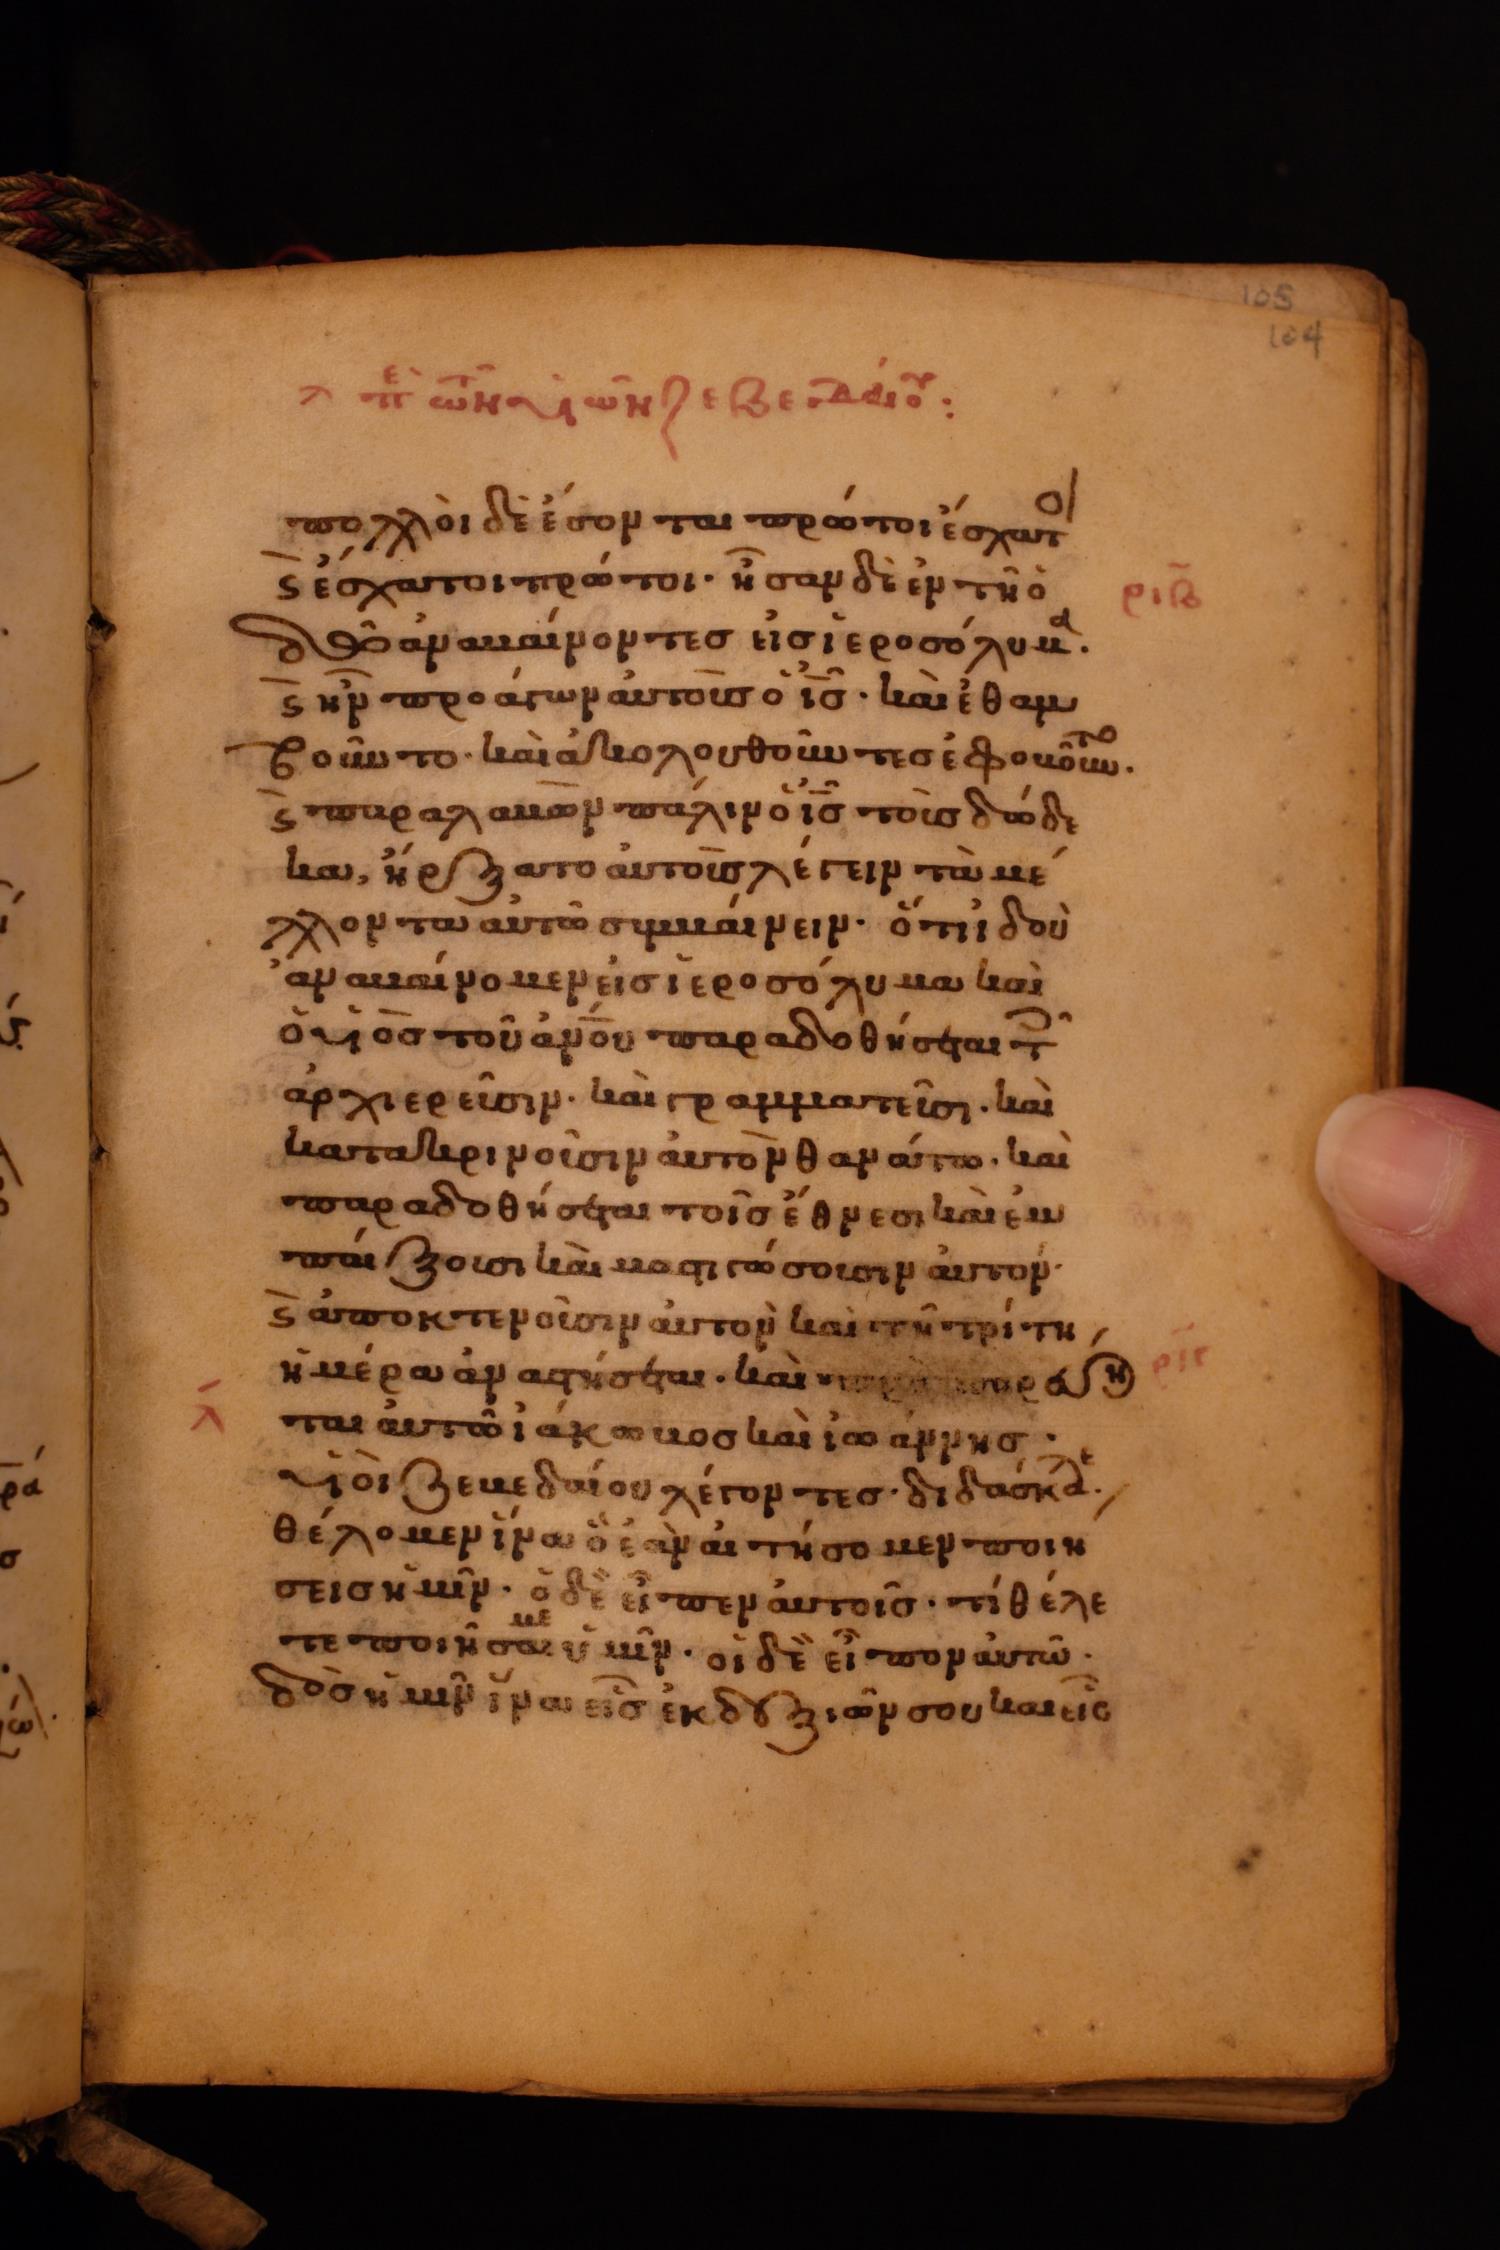 105
104
λ πε τῶν υἱῶν ζεβεδαίου:
πολλοὶ δὲ ἔσονται πρῶτοι ἔσχατοι
ϛ ἔσχατοι πρῶτοι· ἦσαν δὲ ἐν τῆ ὁ
ριβ
δῶ ἀναβαίνοντες εἰς ἱεροσόλυμα.
ϛ ἦν προάγων αὐτοὺς ὁ ις· καὶ ἐθαμ
βοῦντο· καὶ ἀκολουθοῦντες ἐφοβοῦντο.
ϛ παραλαβὼν πάλιν ὁ ις τοὺς δώδε
κα, ἤρξατο αὐτοῖς λέγειν τὰ μέ
λλοντα αὐτῶ συμβαίνειν· ὅτι ἰδοὺ
ἀναβαίνομεν εἰς ἱεροσόλυμα καὶ
ὁ υἱὸς τοῦ ανου παραδοθήσεται τ
ἀρχιερεῦσιν· καὶ γραμματεῦσι· καὶ
κατακρινοῦσιν αὐτὸν θανάτω· καὶ
παραδοθήσεται τοῖς ἔθνεσι καὶ ἐμ
παίξουσι καὶ μαστιγώσουσιν αὐτόν·
ϛ ἀποκτενοῦσιν αὐτὸν καὶ τῆ τρίτη
ἡμέρα ἀναστήσεται· καὶ
ριγ
λ
ται αὐτῶ ἰάκωβος καὶ ἰωάννης·
υἱοὶ ζεβεδαίου λέγοντες· διδάσκαλε.
θέλομεν ἵνα ὃ ἐὰν αἰτήσομεν ποιή
σεις ἡμῖν· ὁ δὲ εἶπεν αὐτοῖς· τί θέλε
τε ποιῆσαι με ὑμῖν· οἱ δὲ εἶπον αὐτῶ·
δὸς ἡμῖν ἵνα εἷς ἐκ δεξιῶν σου καὶ εἷς